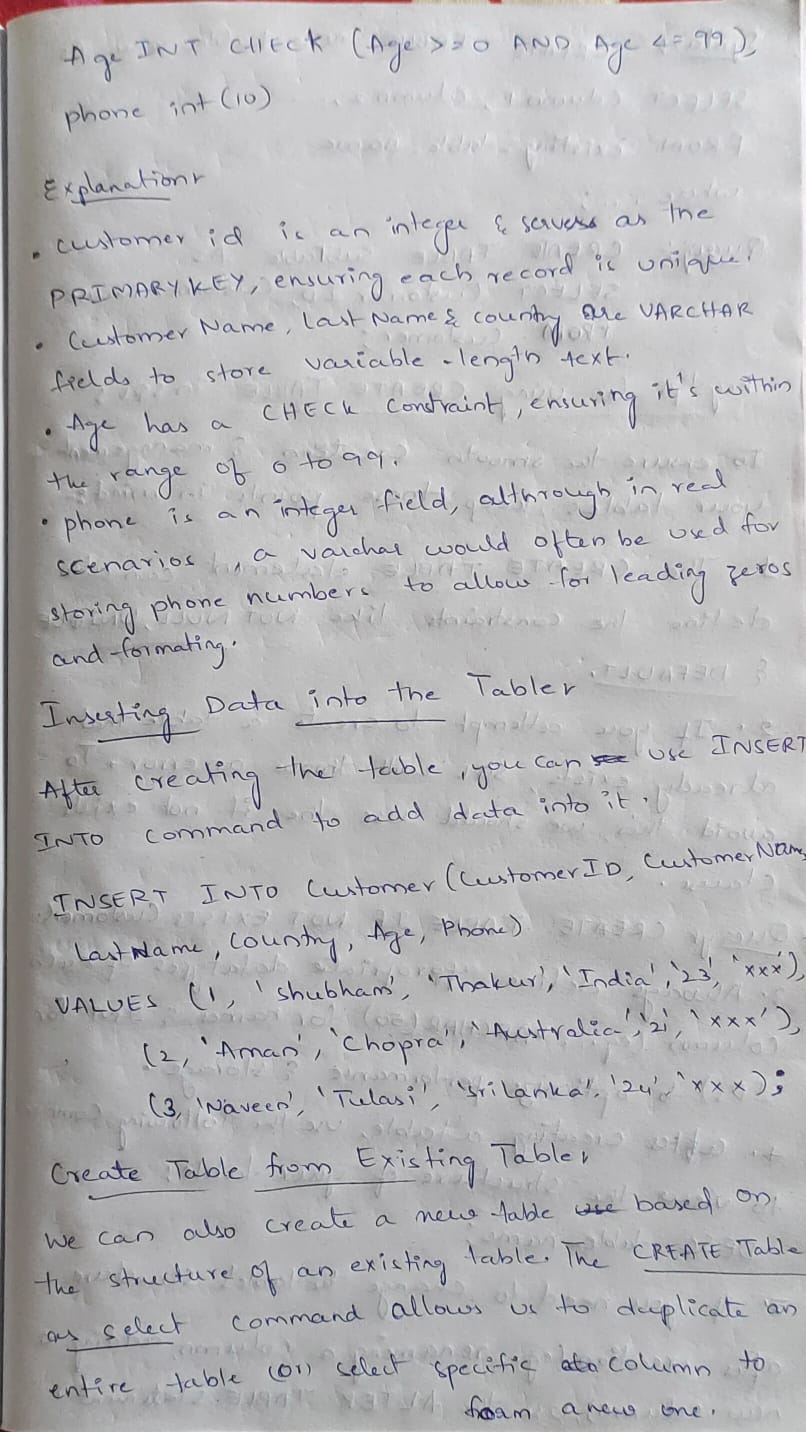 Age INT CHECK (Age >=0 AND Age <=99),
phone int(10)
Explanation:
• customer id is an integer & servess as the
PRIMARY KEY, ensuring each record is unique.
• Customer Name, last Name & country are VARCHAR
fields to store variable-length text.
• Age has a CHECK Constraint, ensuring it's within
the range of 0 to 99.
• phone is an integer field, althrough in real
scenarios, a varchar would often be used for
storing phone numbers to allow for leading zeros
and formating.
Inserting Data into the Table:
After creating the table, you can use INSERT
INTO command to add data into it.
INSERT INTO Customer (CustomerID, CustomerName,
LastName, Country, Age, Phone)
VALUES (1, 'Shubham', 'Thakur', 'India', '23', 'xxx'),
(2, 'Aman', 'Chopra', 'Australia', '21', 'xxx'),
(3, 'Naveen', 'Tulasi', 'Srilanka', '24', 'xxx);
Create Table from Existing Table:
We can also create a new table based on
the structure of an existing table. The CREATE Table
as select command allows us to duplicate an
entire table (or) select specific column to
foam a new one.